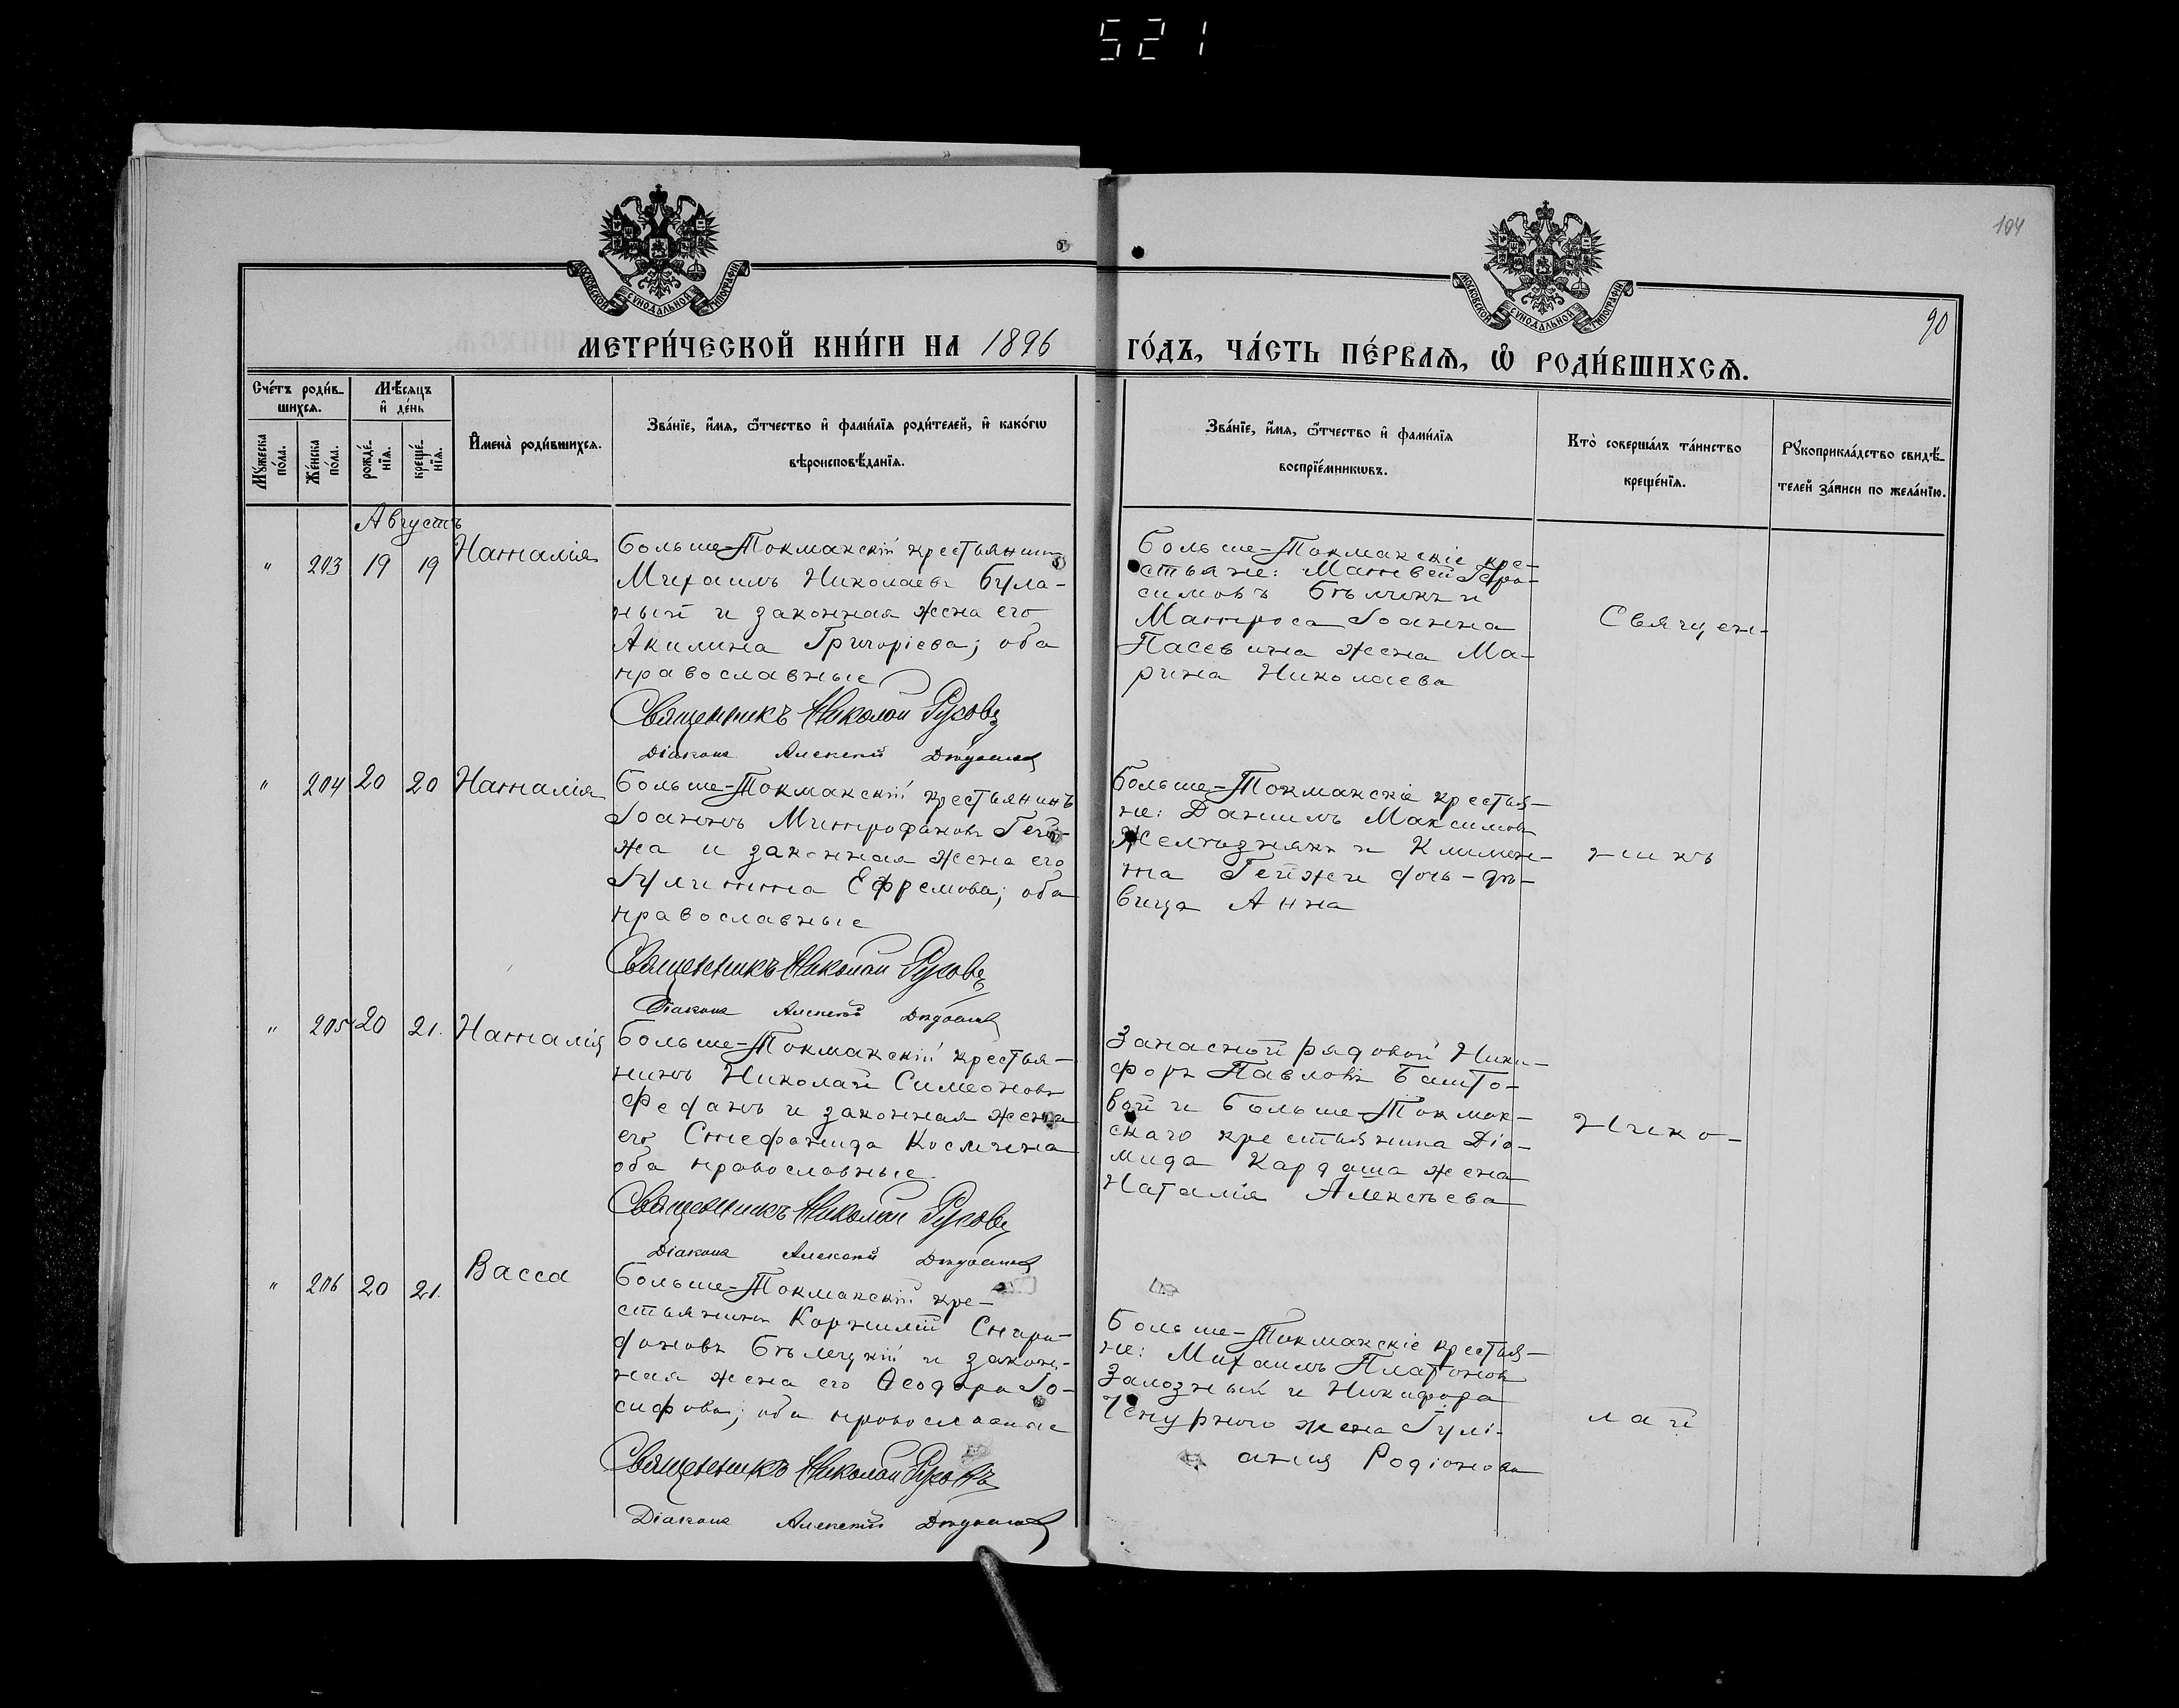 521
104
90
МОСКОВСКОЙ СУНОДАЛЬНОЙ ТИПОГРАФІИ
МОСКОВСКОЙ СУНОДАЛЬНОЙ ТИПОГРАФІИ
МЕТРИ́ЧЕСКОЙ КНИ́ГИ НА 1896 ГО́ДЪ, ЧА́СТЬ ПЕ́РВАѦ, Ѿ РОДИ́ВШИХСѦ.
Сче́тъ роди́в-
шихся.
Мѣ́сяцъ
и де́нь
Му́жеска
по́ла.
Же́нска
по́ла.
рожде́-
нїя.
креще́-
нїя.
И́мена роди́вшихся.
Зва́нїе, и́мя, ѻ҆́тчество и фами́лїя роди́телей, и како́гѡ
вѣроисповѣ́данїя.
Зва́нїе, и́мя, ѻ҆́тчество и фами́лїя
воспрїе́мникѡвъ.
Кто̀ соверша́лъ та́инство
креще́нїя.
Рꙋкоприкла́дство свидѣ́-
телей за́писи по жела́нїю.
Августъ
" 203 19 19 Наталія
Больше-Токмакскій крестьянинъ
Михаилъ Николаевъ Була-
ный и законная жена его
Акилина Григоріева; оба
православные
Священникъ Николай Русовъ
Діаконъ Алексѣй
Больше-Токмакскіе кре-
стьяне: Матвей Гера-
симовъ Бѣликъ и
Матроса Іоанна
Пасевина жена Ма-
рина Николаева
Священ-
" 204 20 20 Наталія
Больше-Токмакскій крестьянинъ
Іоаннъ Митрофановъ Гей-
жа и законная жена его
Іулитта Ефремова; оба
православные
Священникъ Николай Русовъ
Діаконъ Алексѣй
Больше-Токмакскіе крестья-
не: Даніилъ Максимовъ
Желтознякъ и Климен-
та Гейжи дочь-дѣ-
вица Анна
никъ
" 205 20 21. Наталія
Больше-Токмакскій крестья-
нинъ Николай Симеоновъ
Феданъ и законная жена
его Стефанида Космина
оба православные
Священникъ Николай Русовъ
Діаконъ Алексѣй
Запасной рядовой Ники-
форъ Павловъ Башто-
вой и Больше-Токмак-
скаго крестьянина Діо-
мида Кардаша жена
Наталія Алексѣева
Нико-
" 206 20 21. Васса
Больше-Токмакскій кре-
стьянинъ Корнилій Спири-
доновъ Бѣлецкій и закон-
ная жена его Ѳеодора Іо-
сифова; оба православные
Священникъ Николай Русовъ
Діаконъ Алексѣй
Больше-Токмакскіе крестья-
не: Михаилъ Платоновъ
Залозный и Никифора
Чепурного жена Іулі-
анія Родіонова
лай